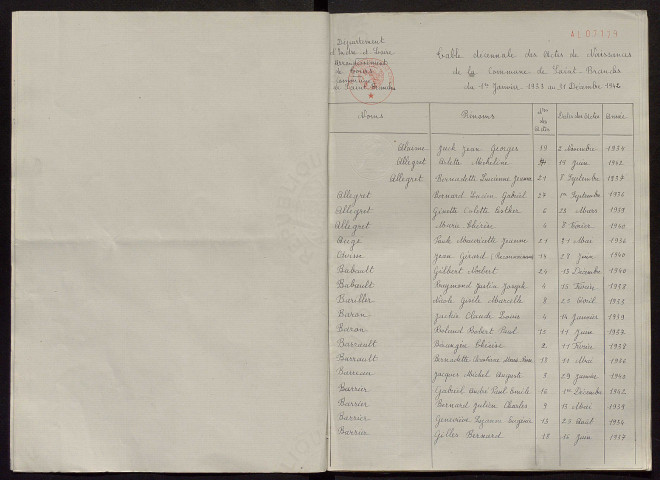 AC03119
Département
d'Indre et Loire
Arrondissement
de Tours
Commune
de Saint Branchs
Table décennale des Actes de Naissances
de la Commune de Saint-Branchs
du 1er Janvier 1933 au 31 Décembre 1942
Noms Prénoms Nos des Actes Dates des Actes Années
Jack Jean Georges 19 2 Novembre 1934
Allegret Arlette Micheline 14 Juin 1942
Allegret Bernadette Lucienne Jeanne 21 8 Septembre 1937
Allegret Bernard Lucien Gabriel 27 1er Septembre 1936
Allegret Ginette Colette Esther 6 28 Mars 1939
Allegret Marie Thérèse 4 8 Février 1940
Augé 21 21 Mai 1936
Jean Gérard (Reconnaissance) 14 28 Juin 1940
Babault Gilbert Norbert 24 13 Décembre 1940
Babault Raymond Justin Joseph 4 13 Février 1938
Bariller Nicole Gisèle Marcelle 8 22 Avril 1933
Baron Jackie Claude Louis 4 14 Janvier 1939
Baron Roland Robert Paul 15 11 Juin 1937
Thérèse 2 11 Février 1938
Barrault Bernadette 13 11 Mai 1936
Jacques Michel Auguste 3 29 Janvier 1942
Barrier Gabriel André Paul Emile 16 1er Décembre 1942
Barrier Bernard Julien Charles 9 13 Mai 1939
Barrier Geneviève Suzanne Eugénie 13 23 Août 1934
Barrier Gilles Bernard 18 16 Juin 1937